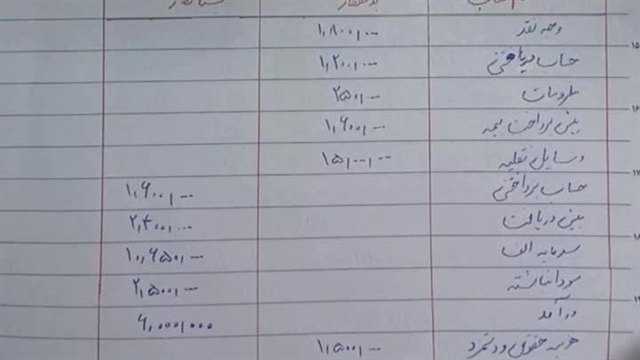 وجه نقد ۱,۸۰۰,۰۰۰
حساب دریافتنی ۱,۲۰۰,۰۰۰
ملزومات ۲۵۰,۰۰۰
پیش پرداخت بیمه ۱,۶۰۰,۰۰۰
وسایل نقلیه ۱۵,۰۰۰,۰۰۰
حساب پرداختنی ۱,۶۰۰,۰۰۰
پیش دریافت
سرمایه الف ۱۰,۶۵۰,۰۰۰
سود انباشته ۲,۵۰۰,۰۰۰
درآمد ۶,۰۰۰,۰۰۰
هزینه حقوق و دستمزد ۱,۵۰۰,۰۰۰